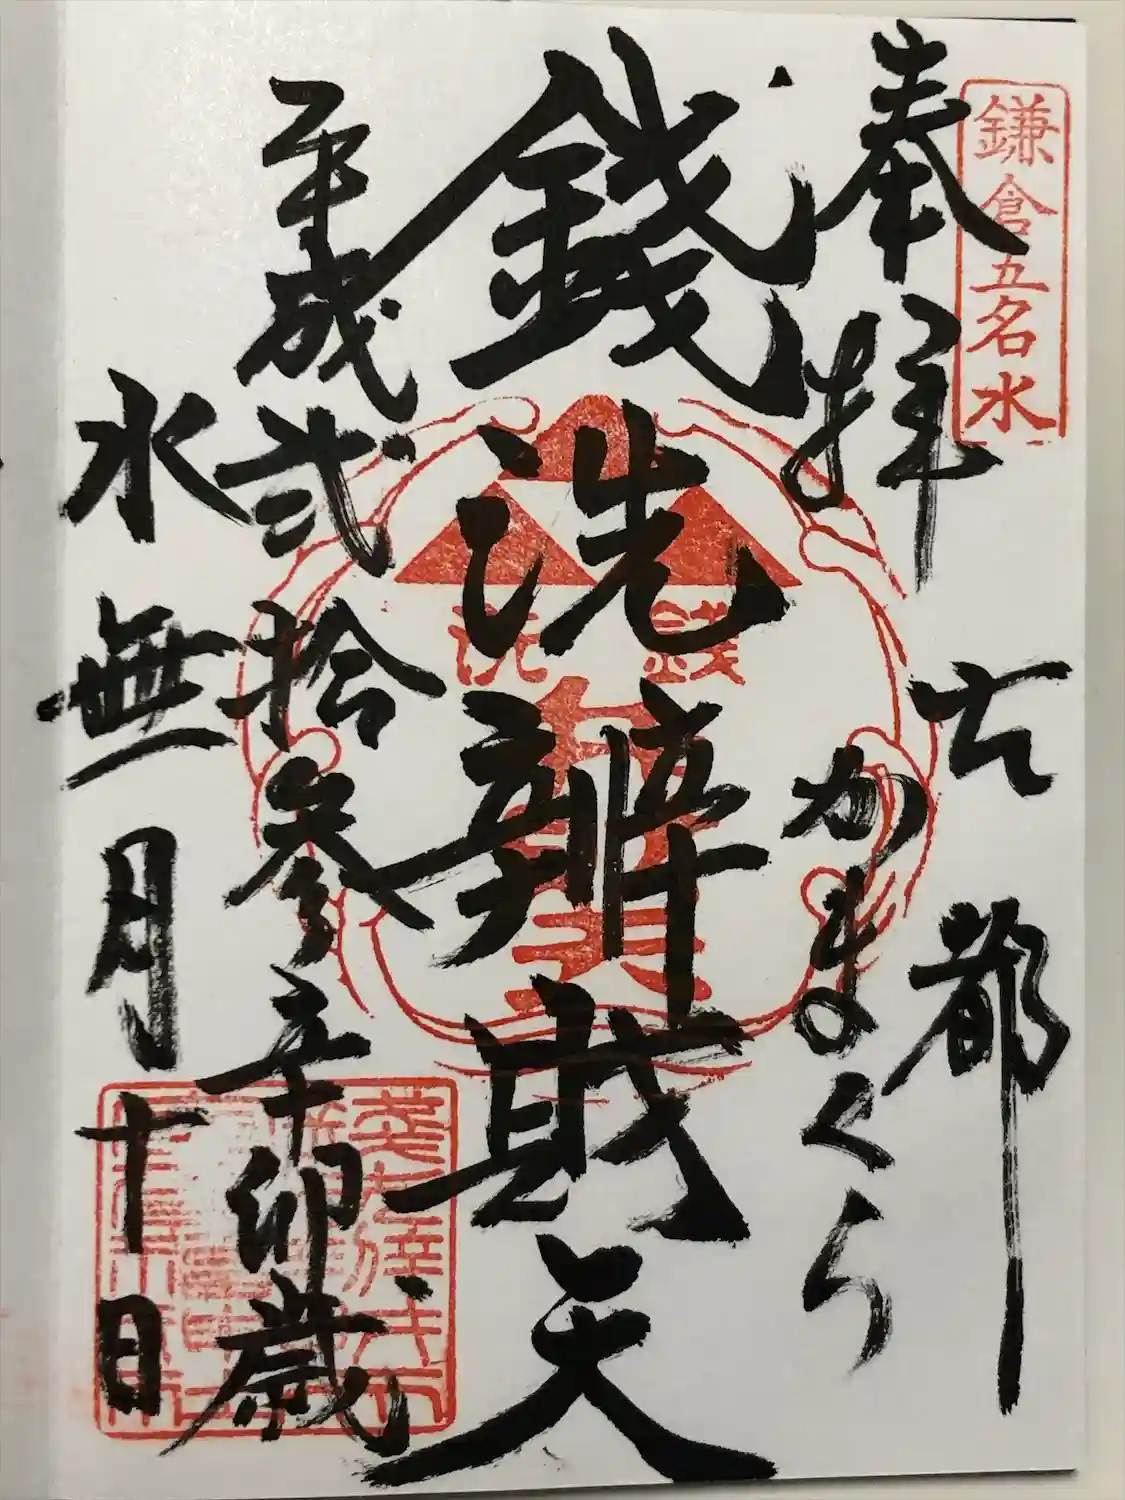 鎌倉五名水
奉拝
古都
かまくら
銭洗辨財天
銭洗
平成弐拾参年辛卯歳
水無月十日